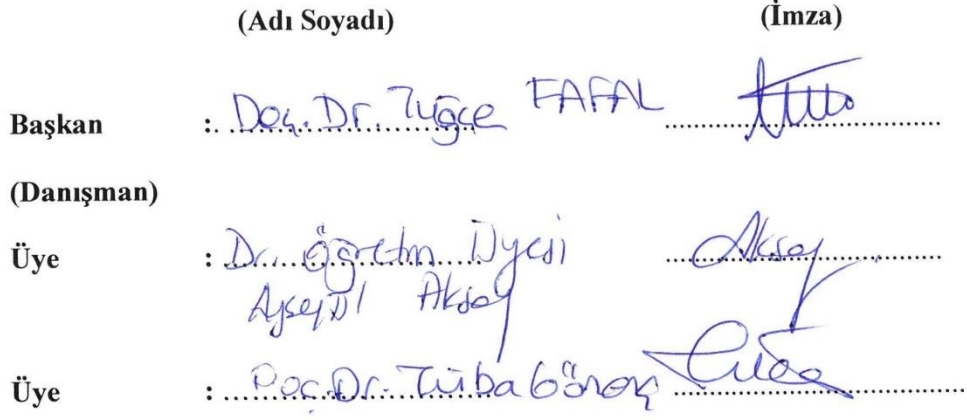 (Adı Soyadı) (İmza)
Başkan : Doç. Dr. Tuğçe FAFAL
(Danışman)
Üye : Dr. Öğretm Üyesi Aksoy
Aksoy
Üye : Doç. Dr. Tuba